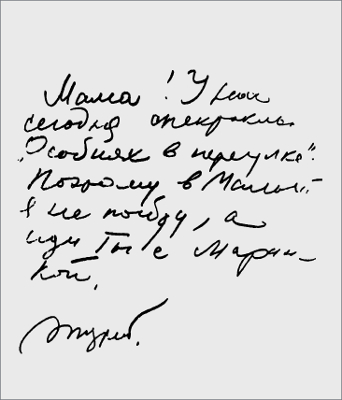 Мама! У нас
сегодня спектакль
„Особняк в переулке".
Поэтому в Малый
я не пойду, а
иди ты с Марин-
кой.